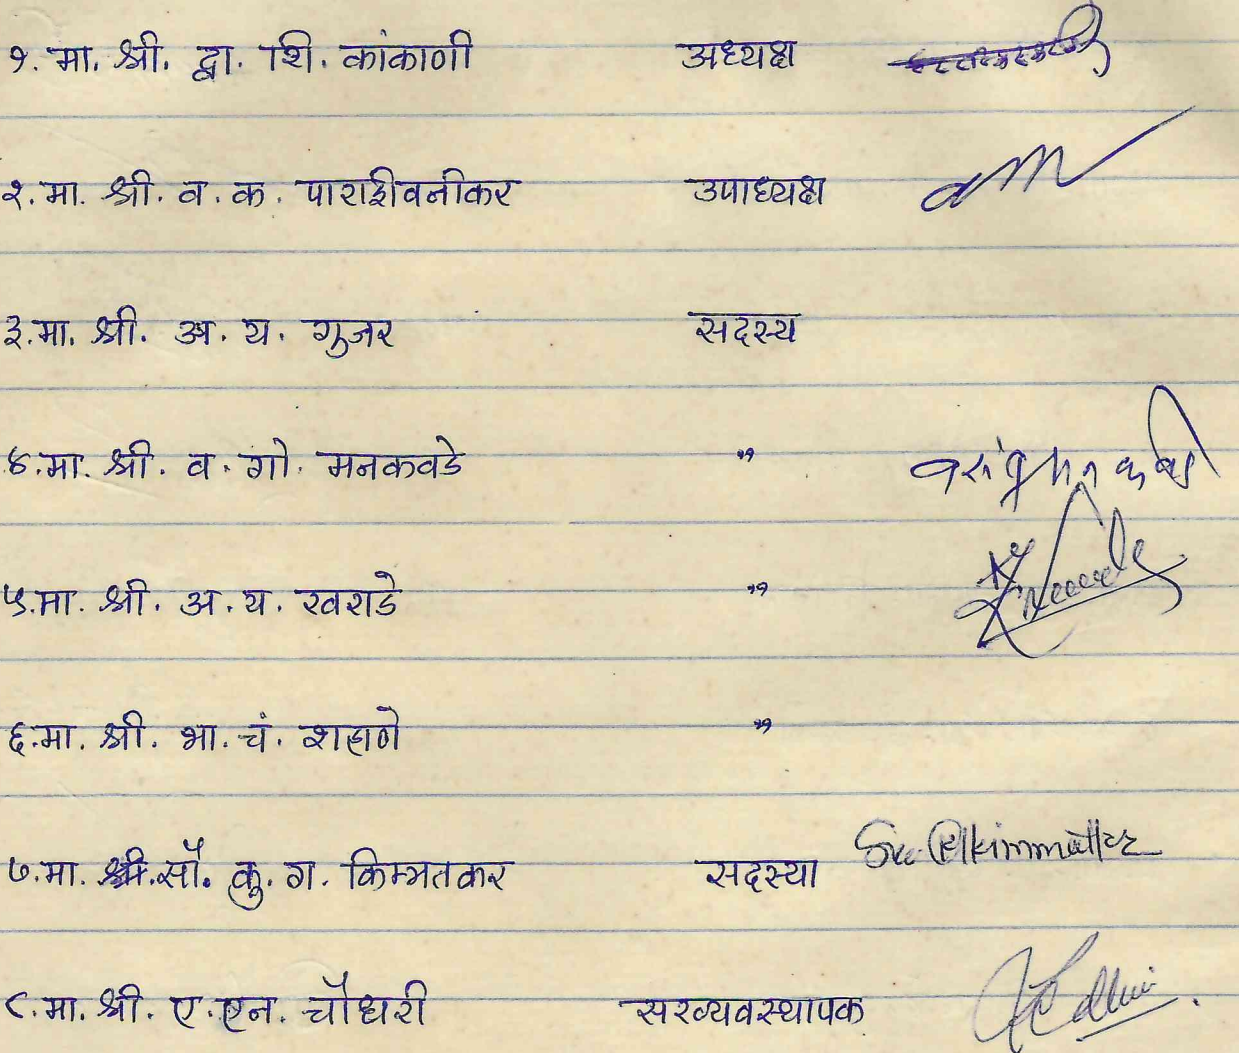 १. मा. श्री. द्वा. शि. कांकाणी अध्यक्ष
२. मा. श्री. व. क. पाराशीवनीकर उपाध्यक्ष
३. मा. श्री. अ. य. गुजर सदस्य
४. मा. श्री. व. गो. मनकवडे "
५. मा. श्री. अ. य. खराडे "
६. मा. श्री. भा. चं. शहाणे "
७. मा. श्री. सौ. कु. ग. किम्मतकर सदस्या
८. मा. श्री. ए. एन. चौधरी सरव्यवस्थापक